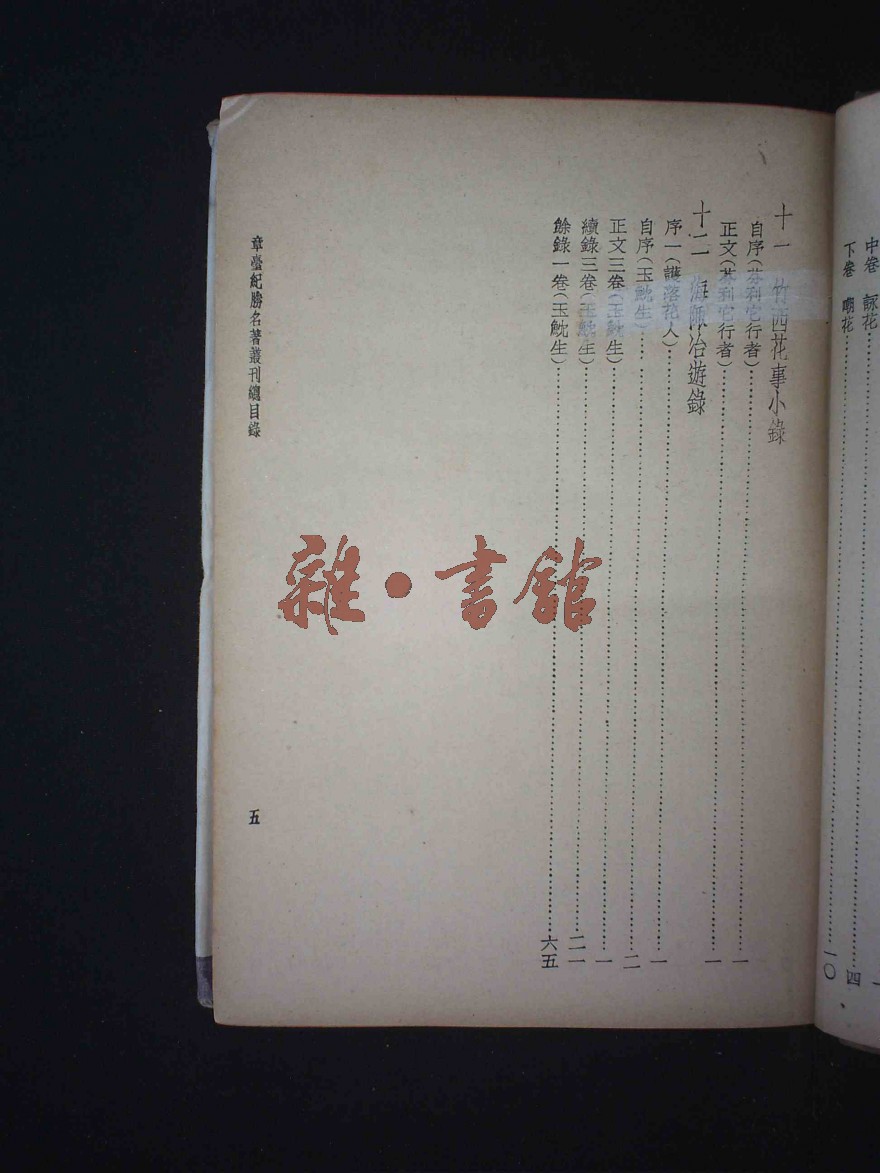 中卷　詠花……一四
下卷　嘲花……一〇
十一　竹西花事小錄
自序(芬利它行者)……一
正文(芬利它行者)……一
十二　海陬冶遊錄
序一(護落花人)……一
自序(玉魫生)……二
正文三卷(玉魫生)……一
續錄三卷(玉魫生)……二一
餘錄一卷(玉魫生)……六五
章臺紀勝名著叢刊總目錄
五
雜·書館